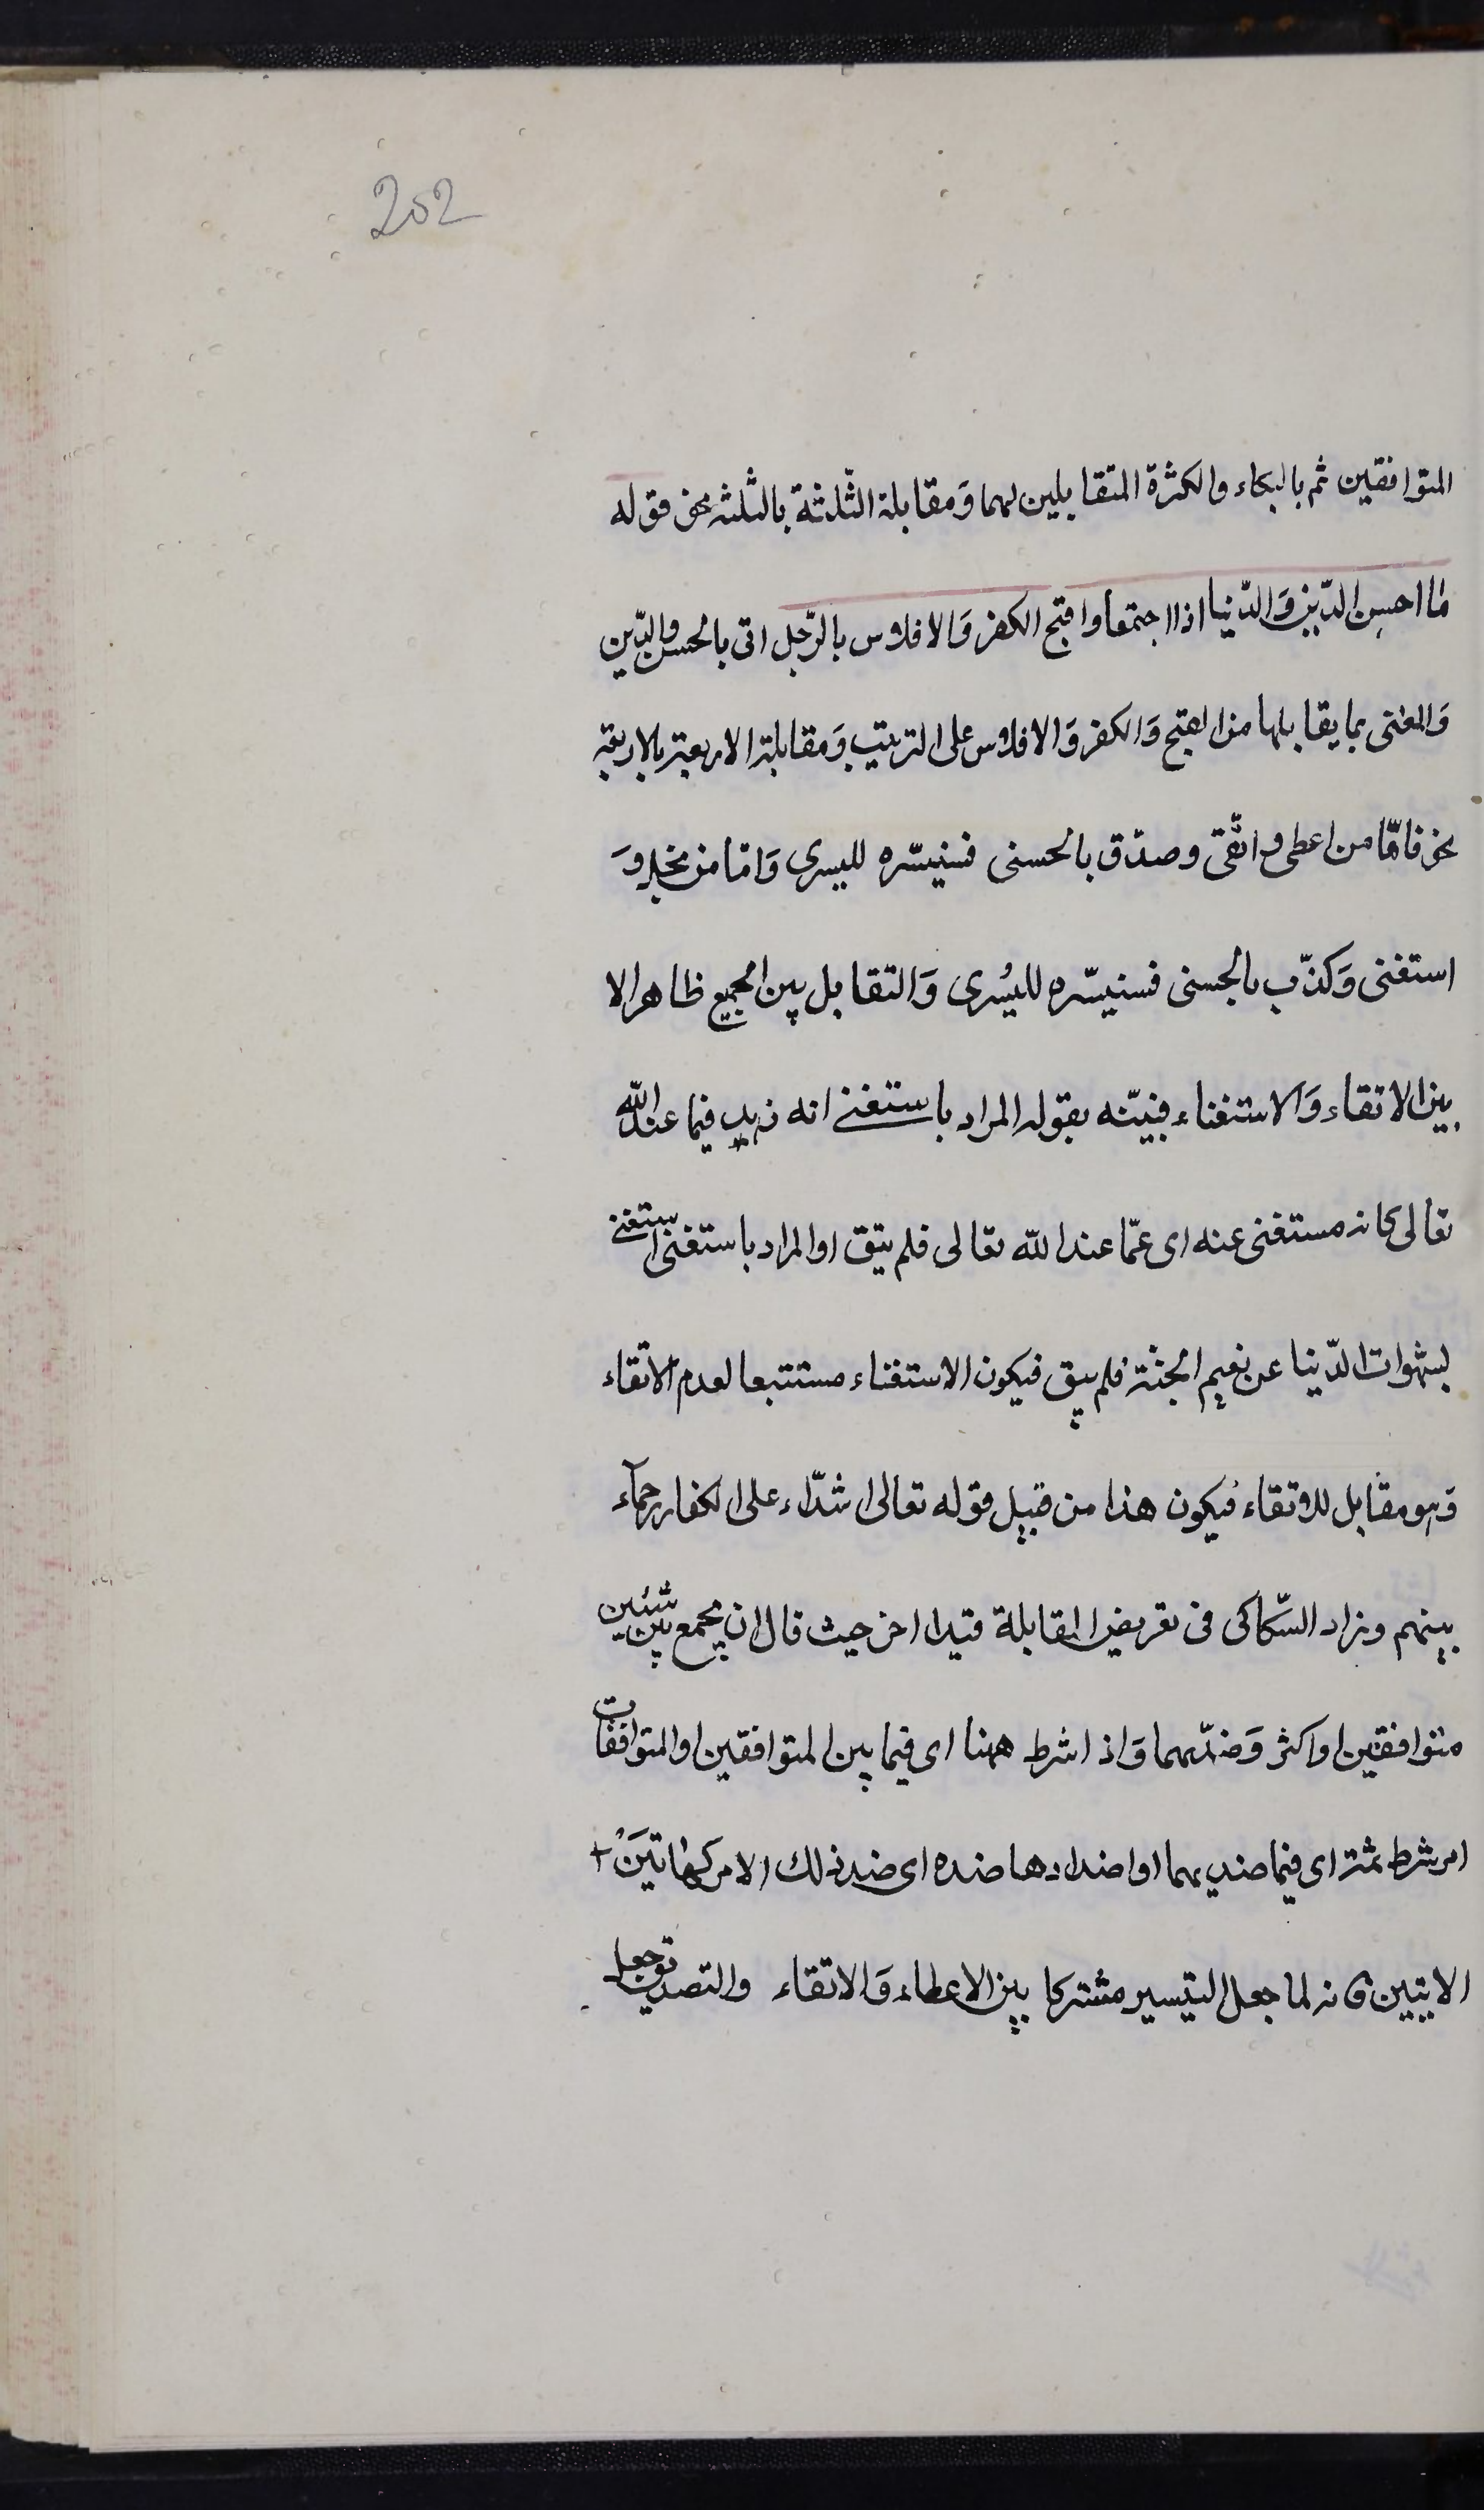 202
المتوافقین ثم بالبکاء والکثرة المتقابلین لهما وَمقابلة الثّلثة بالثلثه نحو قوله
ما احسن الدّین وَالدّنیا اذا اجتمعا واقبح الکفر وَالافلاس بالرّجل اتی بالحسن والدّین
وَالغنی بما یقابلها من القبح وَالکفر وَالافلاس علی الترتیب وَمقابلة الاربعة بالاربعة
نحو فامّا من اعطی واتّقی وصدّق بالحسنی فسنیسّره للیسری وَامّا من بخل وَ
استغنی وَکذّب بالحسنی فسنیسّره للیُسری وَالتقابل بین الجمیع ظاهر الا
بین الاتقاء وَالاستغناء فبیّنه بقوله المراد باستغنے انه زهد فیما عند الله
تعالی کانه مستغنی عنه ای عمّا عند الله تعالی فلم یتق او المراد باستغنی استغنے
بشهوات الدّنیا عن نعیم الجنّة فلم یتق فیکون الاستغناء مستتبعا لعدم الاتقاء
وَهو مقابل للاتقاء فیکون هذا من قبیل قوله تعالی اشدّاء علی الکفار رحمآء
بینهم وزاد السّکاکی فی تعریف المقابلة قیدا اخر حیث قال ان یجمع بین شیئین
متوافقین او اکثر وَضدّیهما وَاذا شرط ههنا ای فیما بین المتوافقین او المتوافقات
امر شرط ثمة ای فیما ضدیهما او اضدادها ضده ای ضد ذلك الامر کهاتین
الایتین فانه لما جعل التیسیر مشترکا بین الاعطاء وَالاتقاء والتصدیق وجعل